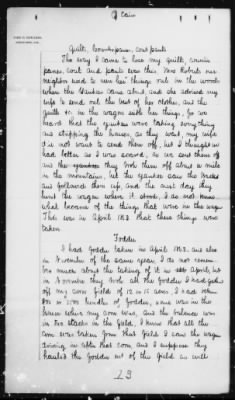 Cain
Quilt, Counterpane, Coat pants
The way I came to lose my quilt, counter
pane, coat and pants was this Mrs Roberts our
neighbor used to run her things out in the woods
when the Yankees came about, and she advised my
wife to send out the best of her clothes, and the
quilts &c in the wagon with her things, for we
heard that the yankees were taking everything
and stripping the houses, as they went, my wife
did not want to send them off, but I thought we
had better as I was scared, so we sent them off
and they took them off about a mile
in the mountains, but the yankees saw the tracks
and followed them up, and the next day they
burnt the wagon where it stood, I do not know
what became of the things that were in the wagon
This was in April 1863 these things were
taken
Fodder
I had fodder taken in April 1863, and also
in November of the same year, I do not remem
ber much about the taking of it in April, but
in November they took all the fodder I had
off my corn field of 12 or 15 acres, I had
or bundles of fodder, some was in the
house where my corn was, and the balance was
in two stacks in the field, I know that all the
corn was taken from that field I saw the wagons
driving in after that corn, and I suppose they
hauled the fodder out of the field as well
23